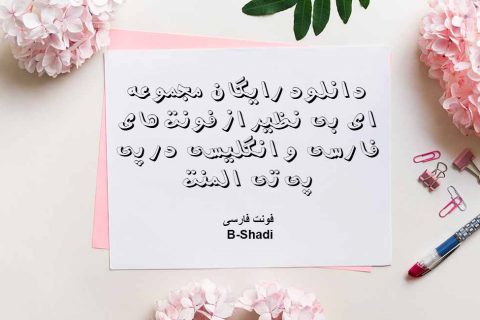 دانلود رایگان مجموعه
ای بی نظیر از فونت های
فارسی و انگلیسی در پی
پی تی المنت
فونت فارسی
B-Shadi